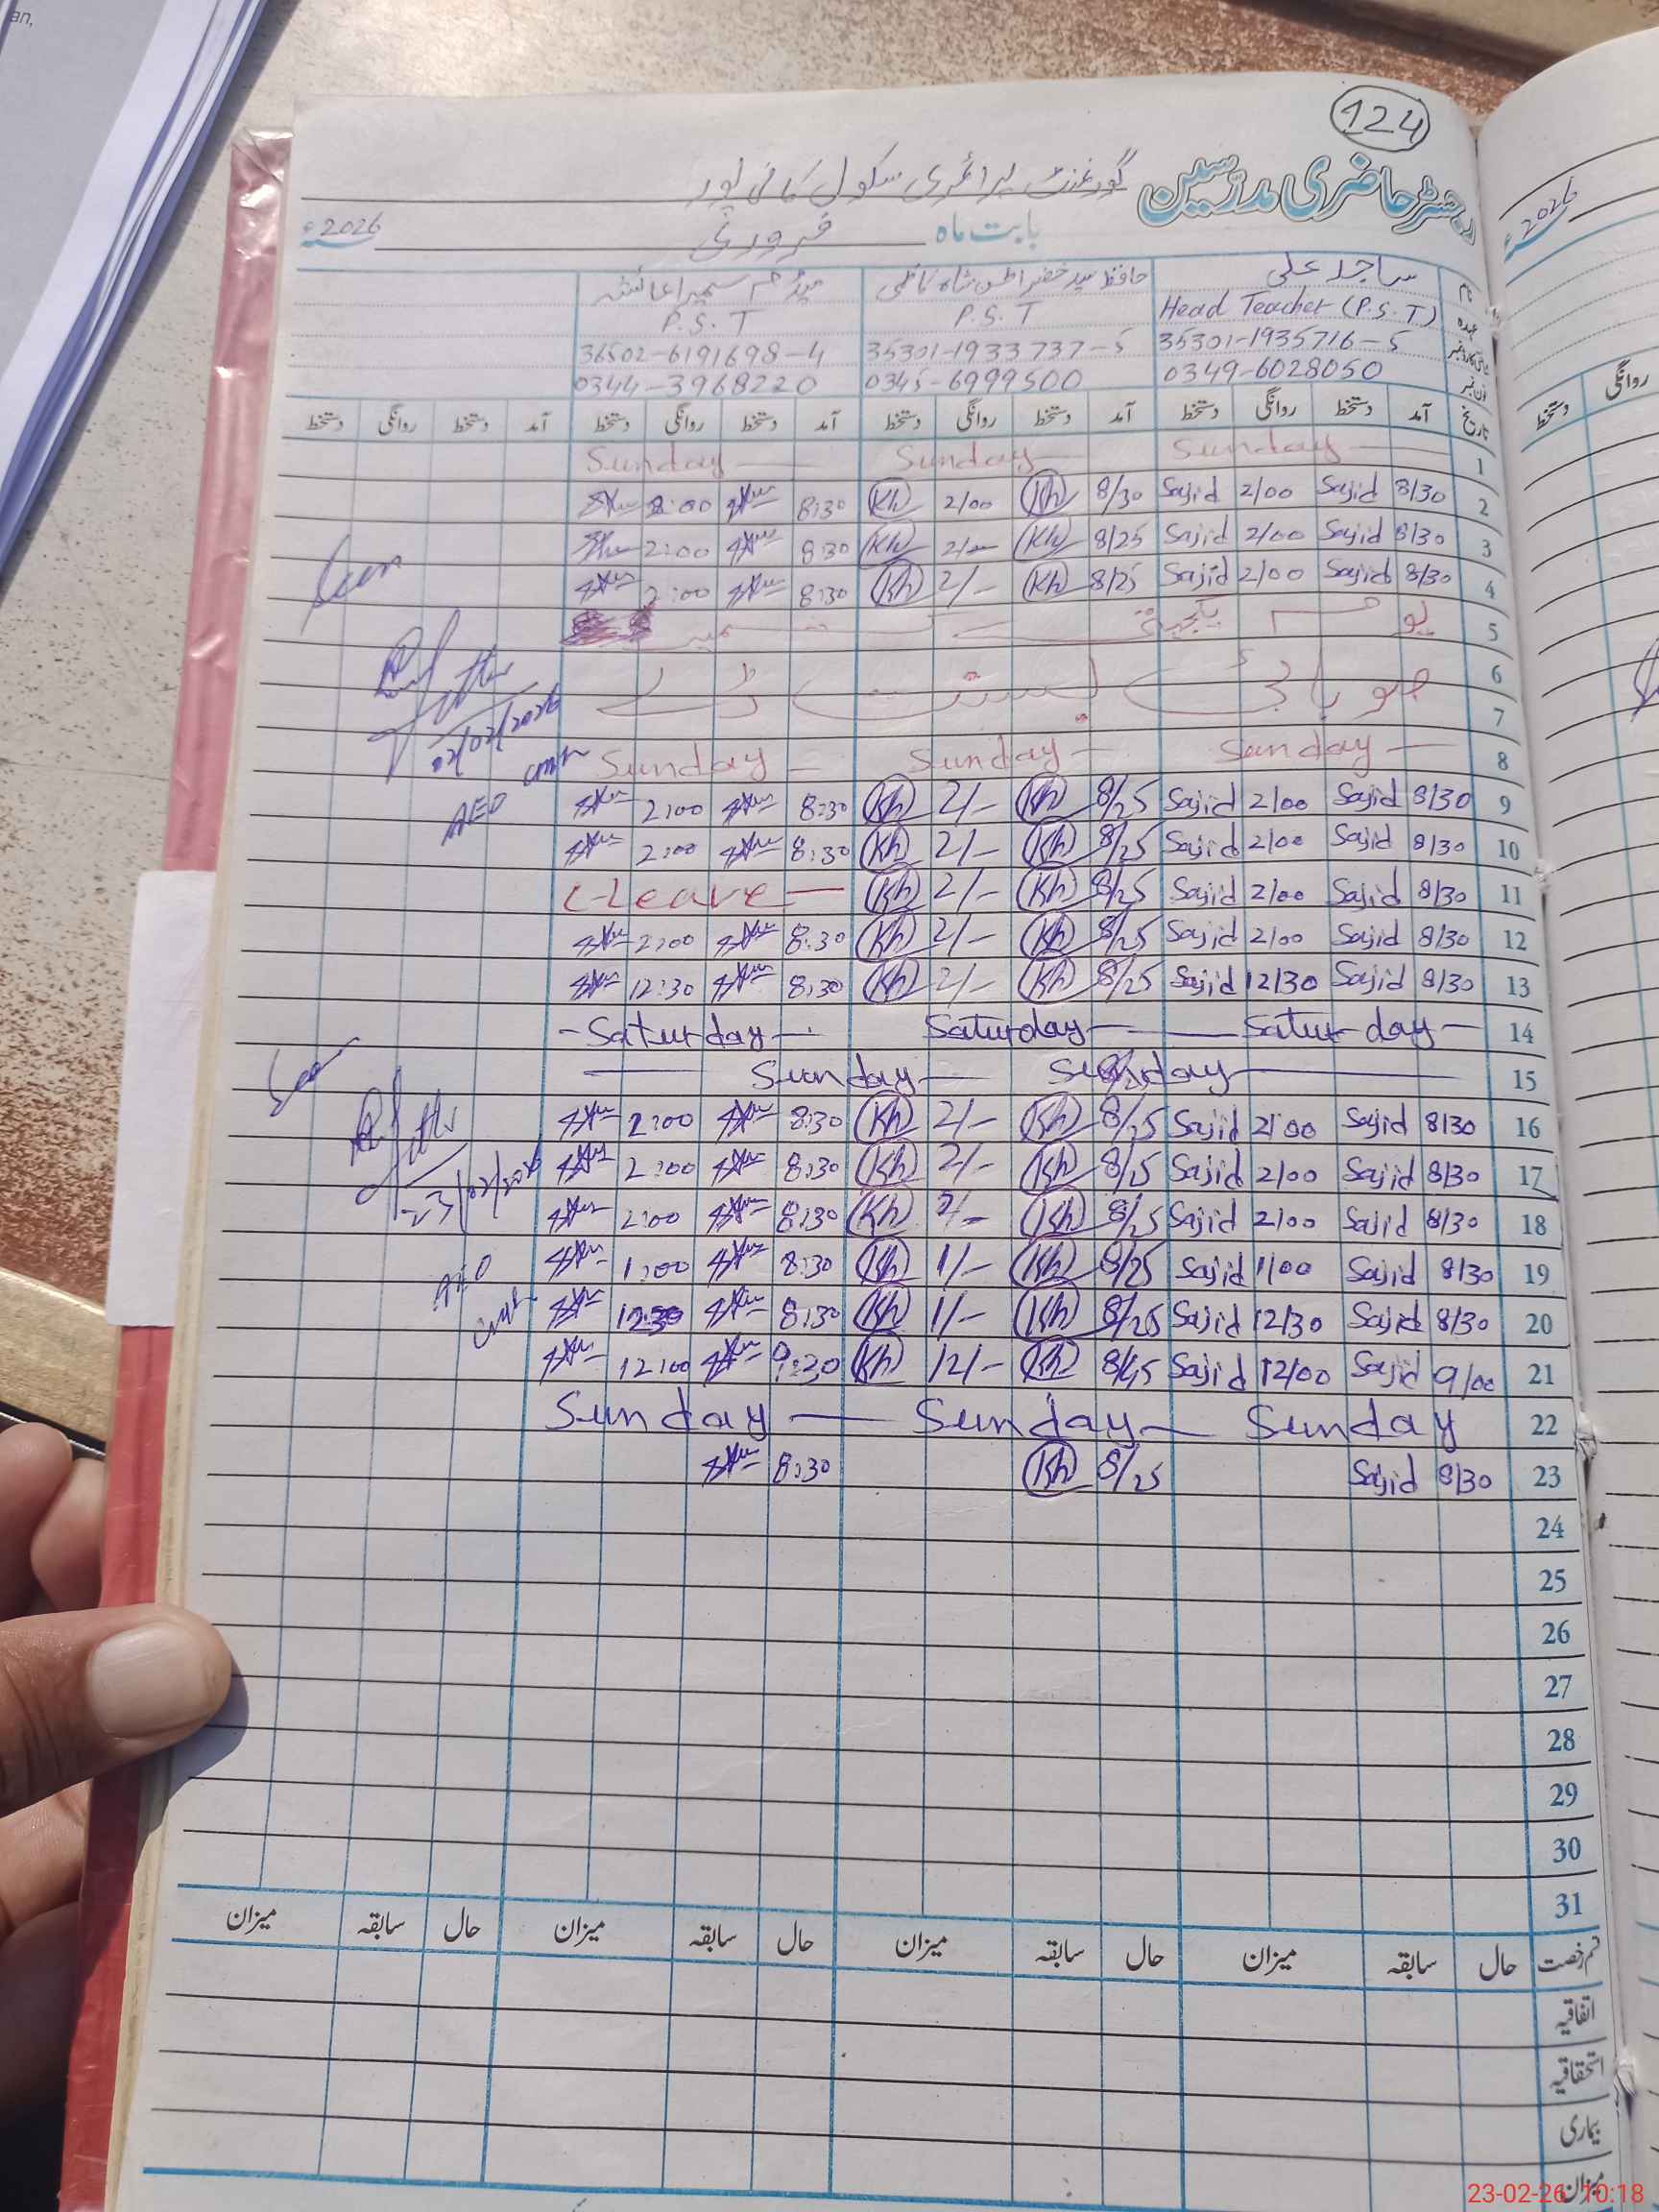 an,
124
رجسٹر حاضری مدرسین گورنمنٹ پرائمری سکول کانی پور
بابت ماہ فروری 2026ء
2026ء
نام ساجد علی حافظ سید خضر شاہ کاظمی میڈم سمیرا عائشہ
عہدہ Head Teacher (P.S.T) P.S.T P.S.T
شناختی کارڈ نمبر 35301-1935716-5 35301-1933737-5 36502-6191698-4
فون نمبر 0349-6028050 0345-6999500 0344-3968220
تاریخ آمد دستخط روانگی دستخط آمد دستخط روانگی دستخط آمد دستخط روانگی دستخط آمد دستخط روانگی دستخط
روانگی دستخط
1 Sunday Sunday Sunday
2 8/30 Sajid 2/00 Sajid 8/30 Kh 2/00 Kh 8:30 2:00
3 8/30 Sajid 2/00 Sajid 8/25 Kh 2/— Kh 8:30 2:00
4 8/30 Sajid 2/00 Sajid 8/25 Kh 2/— Kh 8:30 2:00
Seen
5 یوم یکجہتی کشمیر
6
7 صوبائی بسنت ڈے
02/02/2026
8 Sunday Sunday Sunday
AEO
9 8/30 Sajid 2/00 Sajid 8/25 Kh 2/— Kh 8:30 2:00
10 8/30 Sajid 2/00 Sajid 8/25 Kh 2/— Kh 8:30 2:00
11 8/30 Sajid 2/00 Sajid 8/25 Kh 2/— Kh Leave
12 8/30 Sajid 2/00 Sajid 8/25 Kh 2/— Kh 8:30 2:00
13 8/30 Sajid 12/30 Sajid 8/25 Kh 2/— Kh 8:30 12:30
14 Saturday Saturday Saturday
15 Sunday Sunday
Seen
16 8/30 Sajid 2/00 Sajid 8/25 Kh 2/— Kh 8:30 2:00
17 8/30 Sajid 2/00 Sajid 8/25 Kh 2/— Kh 8:30 2:00
23/02/2026
18 8/30 Sajid 2/00 Sajid 8/25 Kh 2/— Kh 8:30 2:00
19 8/30 Sajid 1/00 Sajid 8/25 Kh 1/— Kh 8:30 1:00
AEO
20 8/30 Sajid 12/30 Sajid 8/25 Kh 1/— Kh 8:30 12:30
21 9/00 Sajid 12/00 Sajid Kh 12/— Kh 9:20 12:00
22 Sunday Sunday Sunday
23 8/30 Sajid 8/25 Kh 8:30
24
25
26
27
28
29
30
31
قسم رخصت حال سابقہ میزان حال سابقہ میزان حال سابقہ میزان حال سابقہ میزان
اتفاقیہ
استحقاقیہ
بیماری
میزان
23-02-26 10:18